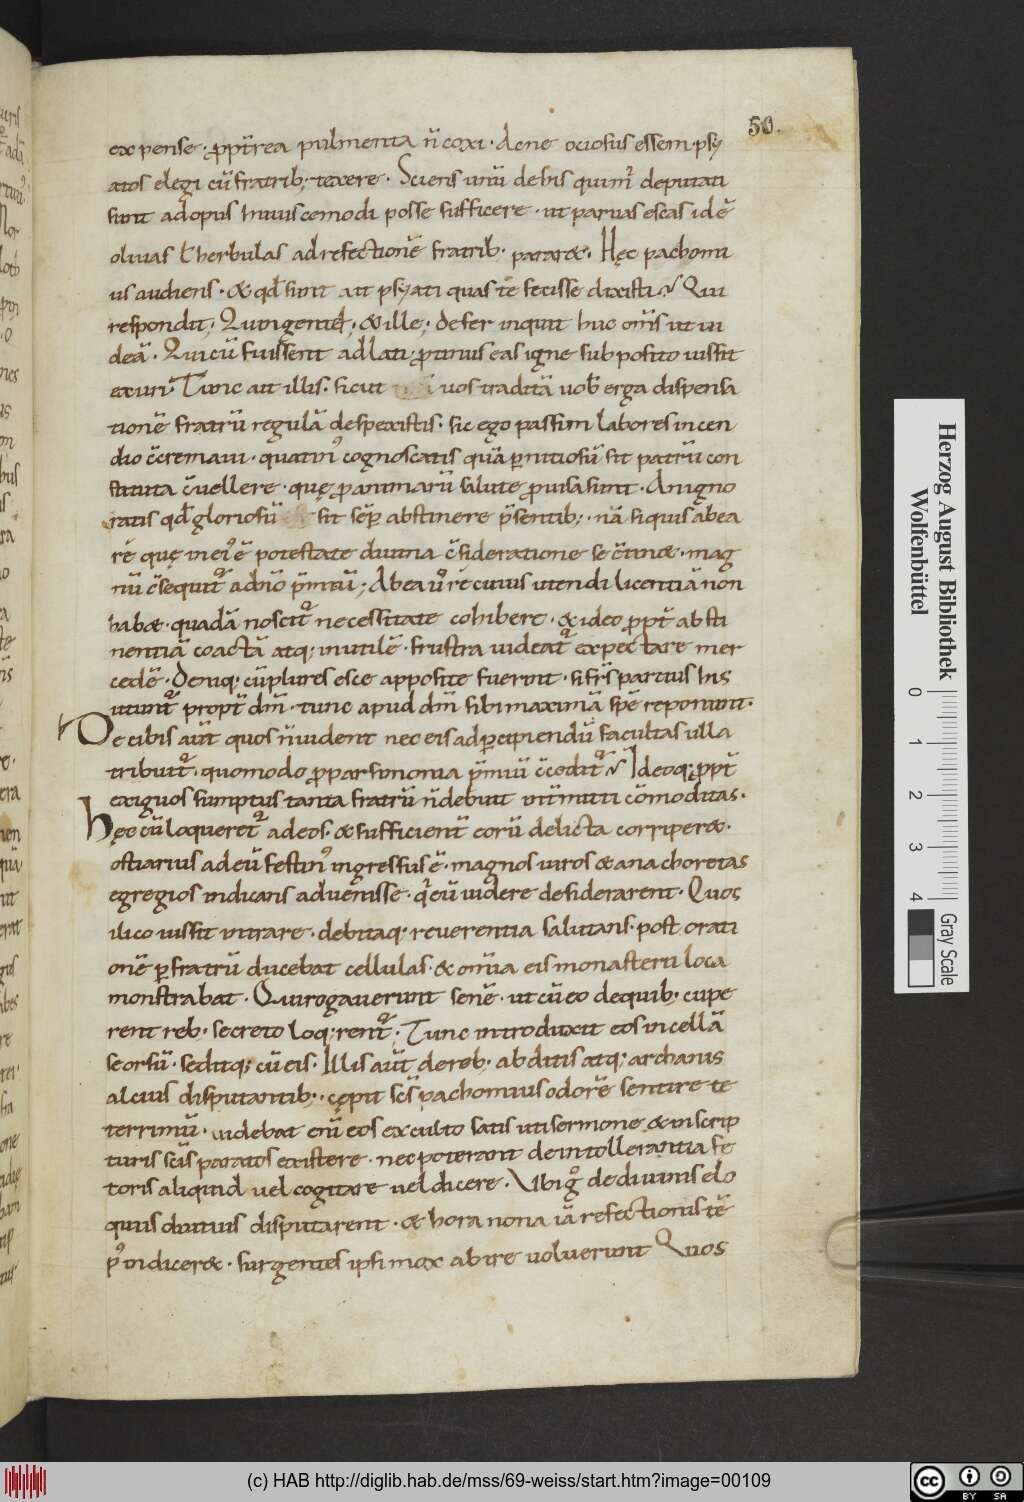 50.
expense · ꝓpt̄rea pulmenta n̄ coxi · Acne ociosus essem · psy
atos elegi cū fratrib; texere · Sciens unū dehis quim̄ deputati
sunt adopus huiuscemodi posse sufficere · ut paruas escas idē
oliuas ł herbulas adrefectionē fratrib· pararet · Hęc pachomi
us audiens · & qđ sunt ait psyati quas tē fecisse dixisti Qui
respondit; Quingenti; & ille; defer inquit huc om̄s ut ui
deā · Qui cū fuissent adlati ꝓtinus eas igne subposito iussit
exuri Tunc ait illis · sicut uos traditā uob̄ erga dispensa
tionē fratrū regulā despexistis · sic ego passim labores incen
dio c̄cremaui · quatin᾽ cognoscatis quā ꝑnitiosū sit patrū con
stituta c̄uellere · quę ꝓ animarū salute ꝓuisa sunt · An igno
ratis qđ gloriosū sit sēp abstinere p̄sentib; · nā siquis abea
rē quę inei᾽ ē potestate diuina c̄sideratione se c̄tinet · mag
nū c̄sequit᷑ adn̄o p̄miū; Abea u᷑o rē cuius utendi licentiā non
habet · quadā noscit᷑ necessitate cohiberi · & ideo ꝓpt̄ absti
nentiā coactā atq; inutilē · frustra uideat᷑ expectare mer
cedē · Deniq; cū plures esce apposite fuerint · si fr̄s partius his
utunt᷑ propt̄ dm̄ · tunc apud dm̄ sibi maximā spē reponunt ·
De cibis aūt quos n̄ uident nec eis adꝑcipiendū facultas ulla
tribuit᷑ · quomodo ꝓ parsimonia p̄miū c̄cedit᷑ Ideoq; ꝓpt̄
exiguos sumptus tanta fratrū n̄ debuit int̄mitti cōmoditas ·
Hęc cū loqueret᷑ adeos · & sufficient̄ eorū delicta corriperet ·
ostiarius adeū festin᾽ ingressus ē · magnos uiros & anachoretas
egregios indicans aduenisse · q̄ eū uidere desiderarent · Quos
ilico iussit intrare · debitaq; reuerentia salutans · post orati
onē ꝑ fratrū ducebat cellulas · & om̄ia eis monasterii loca
monstrabat · Qui rogauerunt senē · ut cū eo dequib; cupe
rent reb; secreto loq;rent᷑ · Tunc introduxit eos incellā
seorsū · seditq; cū eis · Illis aūt dereb; abditis atq; archanis
alcius disputantib; · cępit sc̄s pachomius odorē sentire te
terrimū · uidebat eni᷑ eos exculto satis uti sermone & inscrip
turis sc̄is paratos existere · nec poterant deintollerantia fe
toris aliquid uel cogitare uel dicere · Ubi g᷑ dediuinis elo
quiis diutius disputarent · & hora nona iā refectionis tē
p᾽ indiceret · surgentes ipsi mox abire uoluerunt Quos
Herzog August Bibliothek
Wolfenbüttel
0 1 2 3 4
Gray Scale
(c) HAB http://diglib.hab.de/mss/69-weiss/start.htm?image=00109
cc BY SA